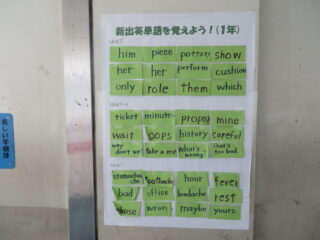 新出英単語を覚えよう！(1年)
him piece pottery show
her her perform cushion
only role them which
ticket minute people mine
wait oops history careful
why don't we take a rest what's wrong? that's too bad
stomachache toothache hour fever
bad office headache rest
whose wrong maybe yours